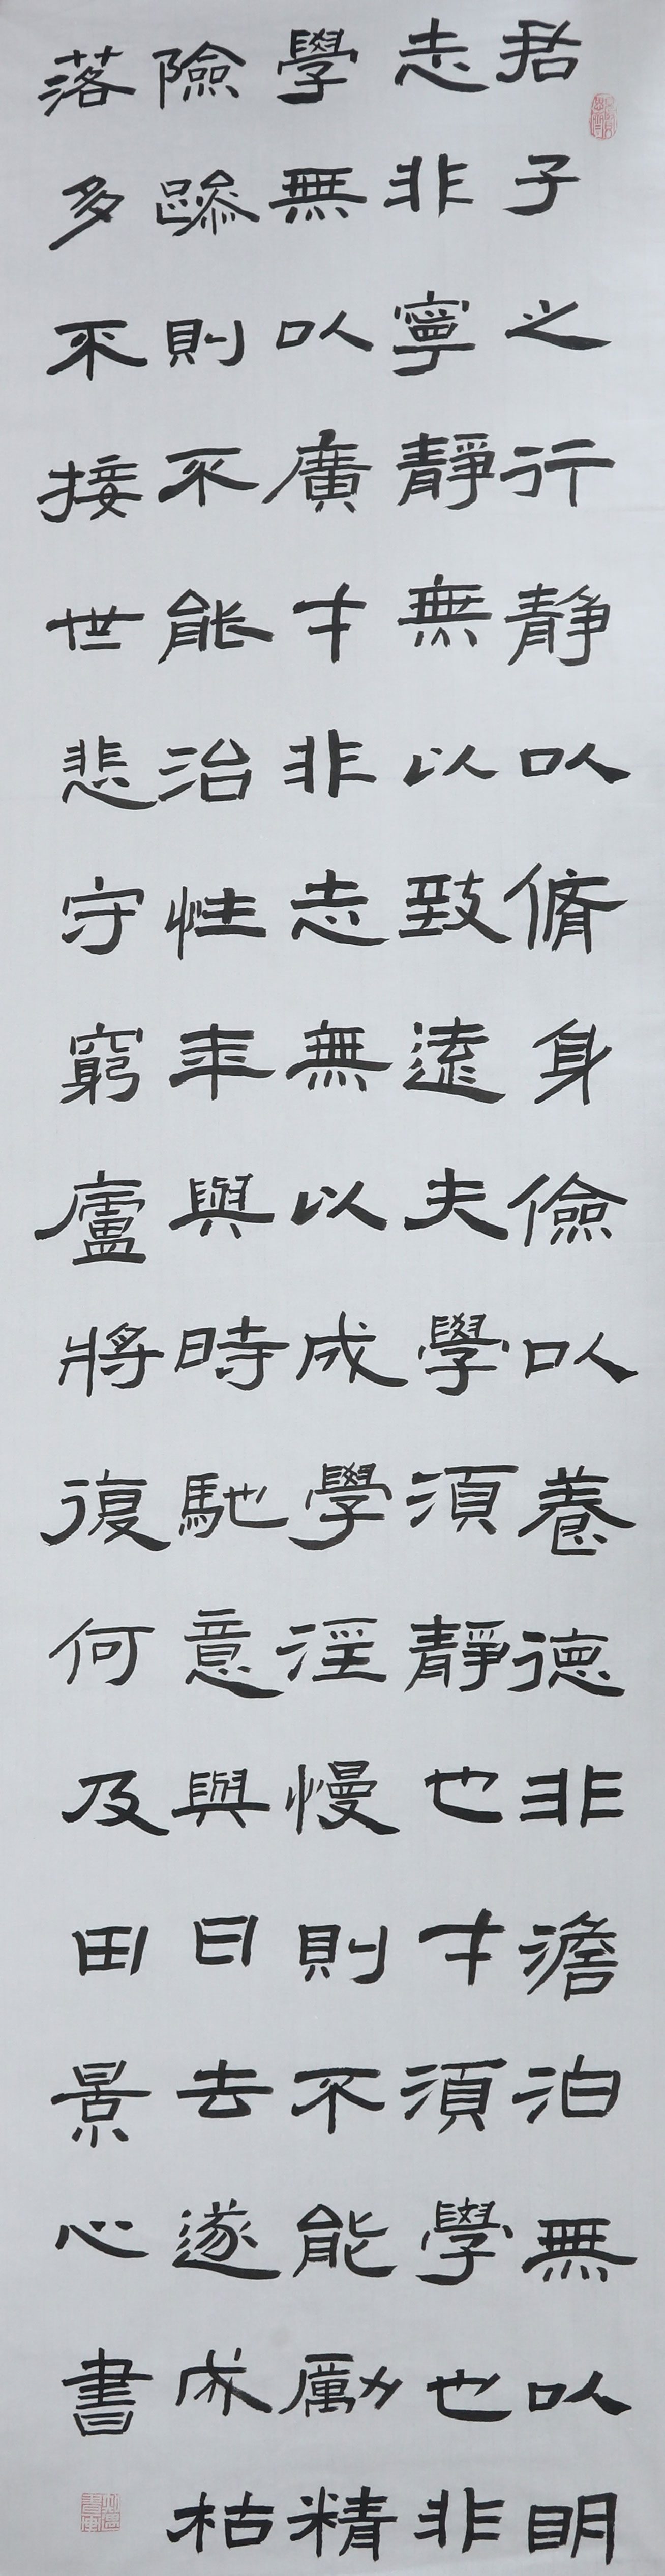 君子之行靜以脩身儉以養德非澹泊無以明
志非寧靜無以致遠夫學須靜也才須學也非
學無以廣才非志無以成學淫慢則不能勵精
險躁則不能治性年與時馳意與日去遂成枯
落多不接世悲守窮廬將復何及田景心書